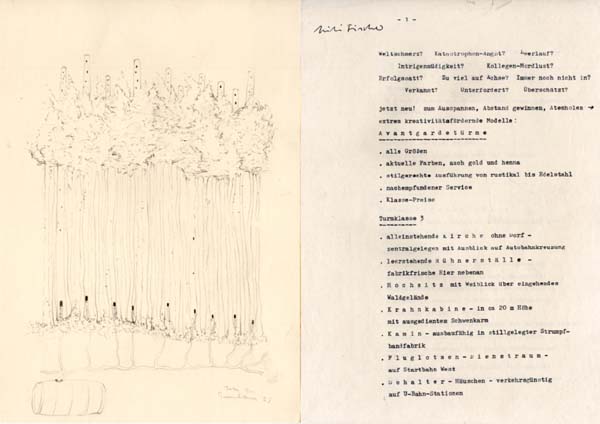 - 1 -
Weltschmerz? Katastrophen-Angst? Leerlauf?
Intrigenmüdigkeit? Kollegen-Mordlust?
Erfolgssatt? Zu viel auf Achse? Immer noch nicht in?
Verkannt? Unterfordert? Überschätzt?
jetzt neu! zum Ausspannen, Abstand gewinnen, Atemholen →
extrem kreativitätsfördernde Modelle:
A v a n t g a r d e t ü r m e
. alle Größen
. aktuelle Farben, auch gold und henna
. stilgerechte Ausführung von rustikal bis Edelstahl
. nachempfundener Service
. Klasse-Preise
Turmklasse 3
. alleinstehende K i r c h e ohne Dorf -
zentralgelegen mit Ausblick auf Autobahnkreuzung
. leerstehende H ü h n e r s t ä l l e -
fabrikfrische Eier nebenan
. H o c h s i t z mit Weiblick über eingehendes
Waldgelände
. K r a h n k a b i n e - in ca 20 m Höhe
mit ausgedientem Schwenkarm
. K a m i n - ausbaufähig in stillgelegter Strumpf-
bandfabrik
. F l u g l o t s e n - D i e n s t r a u m -
auf Startbahn West
. S c h a l t e r - Häuschen - verkehrsgünstig
auf U-Bahn-Stationen